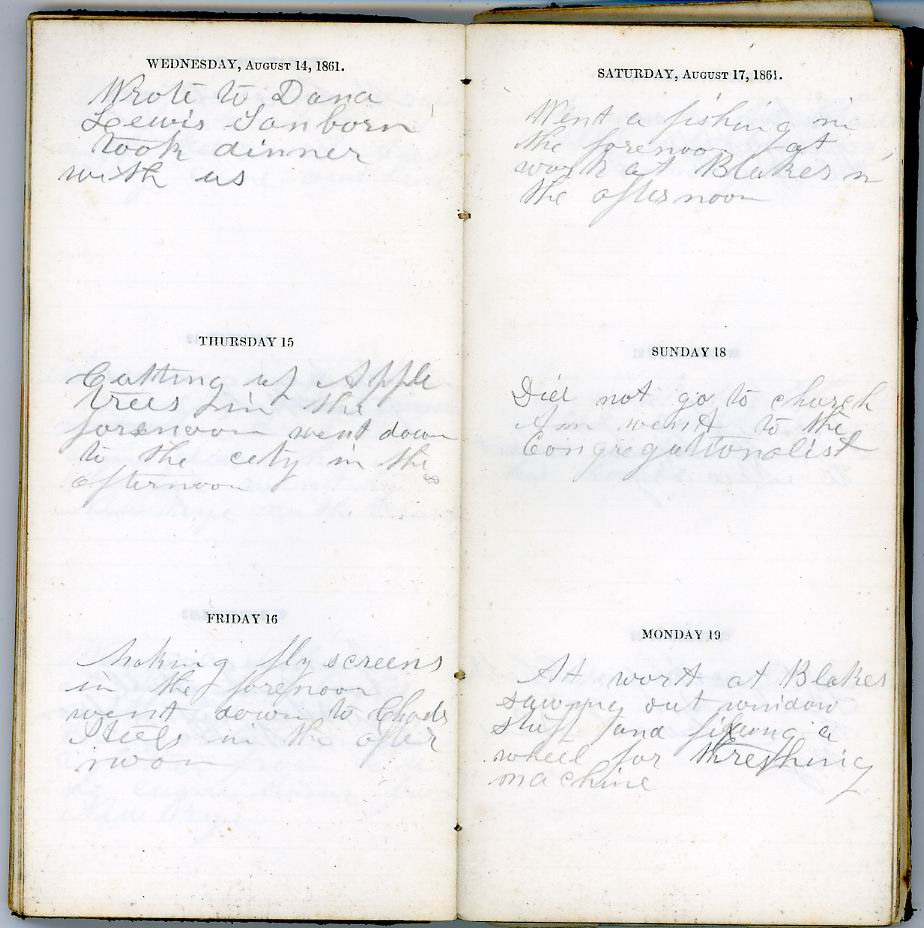 WEDNESDAY, AUGUST 14, 1861.
Wrote to Dana
Lewis Sanborn
took dinner
with us
THURSDAY 15
Cutting up Apple
trees in the
forenoon went down
to the city in the
afternoon
FRIDAY 16
Making fly screens
in the forenoon
went down to Chads
Steels in the after
noon
SATURDAY, AUGUST 17, 1861.
Went a fishing in
the forenoon at
work at Blakes in
the afternoon
SUNDAY 18
Did not go to church
Ann went to the
Congregationalist
MONDAY 19
At work at Blakes
sawing out window
stuff and fixing a
wheel for threshing
machine